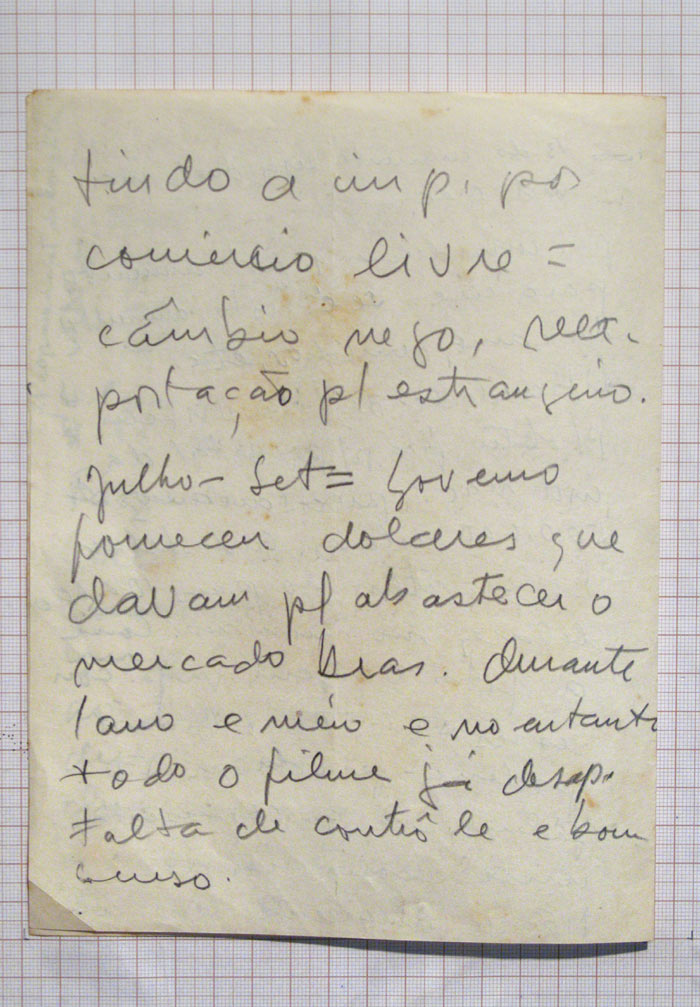 tindo a imp. por
comércio livre =
câmbio nego, reex-
portação p/ estrangeiro.
Julho - Set = Governo
forneceu dolares que
davam p/ abastecer o
mercado bras. durante
1 ano e meio e no entanto
todo o filme já desap.
Falta de contrôle e bom
senso.